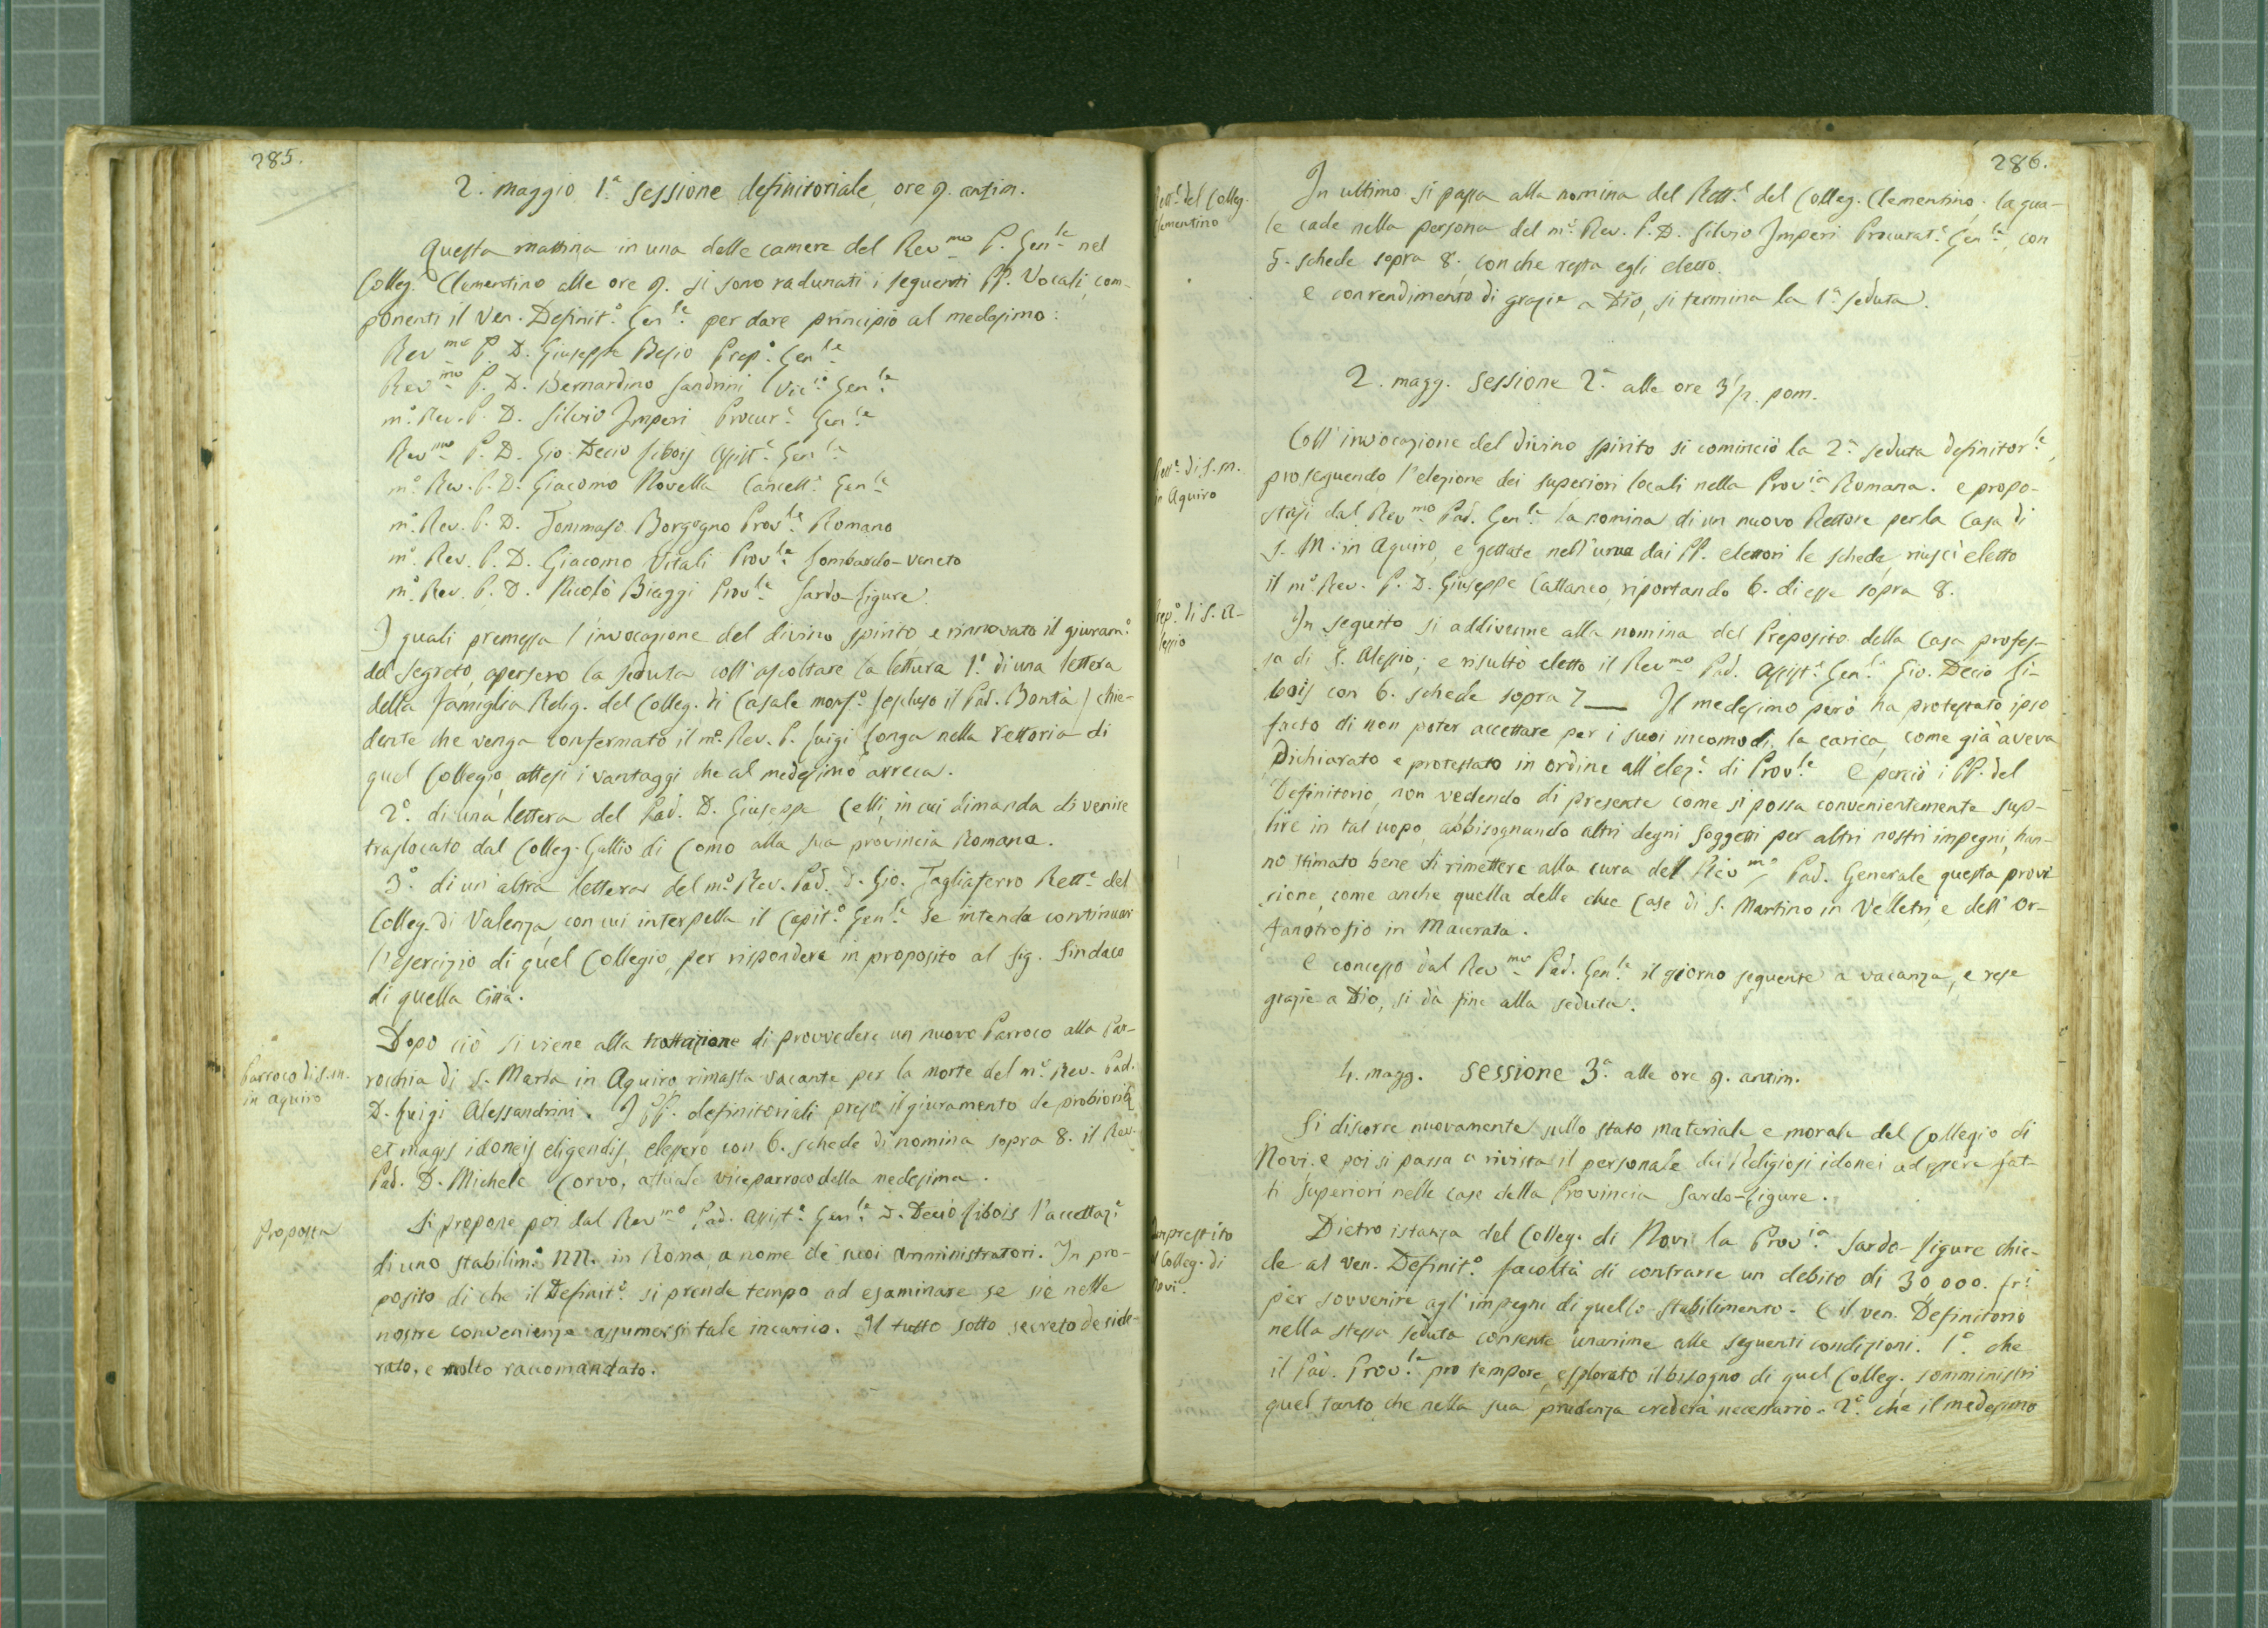 285.
2. maggio 1.ª Sessione definitoriale, ore 9. antim.
Questa mattina in una delle camere del Rev.mo P. Gen.le nel
Colleg.o Clementino alle ore 9. si sono radunati i seguenti PP. Vocali, com-
ponenti il Ven. Definit.o Gen.le per dare principio al medesimo:
Rev.mo P. D. Giuseppe Besio Prep.o Gen.le
Rev.mo P. D. Bernardino Sandrini Vic.o Gen.le
m.o Rev. P. D. Silvio Imperi Procur.e Gen.le
Rev.mo P. D. Gio. Decio Libois Assist.e Gen.le
m.o Rev. P. D. Giacomo Novella Cancell.e Gen.le
m.o Rev. P. D. Tommaso Borgogno Prov.le Romano
m.o Rev. P. D. Giacomo Vitali Prov.le Lombardo-Veneto
m.o Rev. P. D. Nicolò Biaggi Prov.le Sardo-Ligure.
I quali premessa l'invocazione del divino spirito e rinnovato il giuram.o
del segreto, apersero la seduta coll'ascoltare la lettura 1.o di una lettera
della famiglia Relig. del Colleg. di Casale monf.o (escluso il Pad. Bontà) chie-
dente che venga confermato il m.o Rev. P. Luigi Longa nella rettoria di
quel Collegio, attesi i vantaggi che al medesimo arreca.
2.o di una lettera del Pad. D. Giuseppe Celli, in cui dimanda di venire
traslocato dal Colleg. Gallio di Como alla sua provincia Romana.
3.o di un'altra lettera del m.o Rev. Pad. D. Gio. Tagliaferro Rett.e del
Colleg. di Valenza, con cui interpella il Capit.o Gen.le se intenda continuar
l'esercizio di quel Collegio, per rispondere in proposito al Sig. Sindaco
di quella Città.
Parroco di S. M.
in Aquiro
Dopo ciò si viene alla trattazione di provvedere un nuovo Parroco alla Par-
rocchia di S. Maria in Aquiro rimasta vacante per la morte del m.o Rev. Pad.
D. Luigi Alessandrini. I PP. definitoriali preso il giuramento de probioribus
et magis idoneis eligendis, elessero con 6. schede di nomina sopra 8. il Rev.
Pad. D. Michele Corvo, attuale viceparroco della medesima.
Proposta
Si propone poi dal Rev.mo Pad. Assist.e Gen.le D. Decio Libois l'accettaz.e
di uno stabilim.o NN. in Roma, a nome de' suoi Amministratori. In pro-
posito di che il Definit.o si prende tempo ad esaminare se sie nelle
nostre convenienze assumersi tale incarico. Il tutto sotto secreto deside-
rato, e molto raccomandato.
286.
Rett.e del Colleg.
Clementino
In ultimo si passa alla nomina del Rett.e del Colleg. Clementino, la qua-
le cade nella persona del m.o Rev. P. D. Silvio Imperi Procurat.e Gen.le, con
5. schede sopra 8. con che resta egli eletto.
E con rendimento di grazie a Dio, si termina la 1.ª seduta.
2. magg. Sessione 2.ª alle ore 3 1/2. pom.
Coll'invocazione del divino spirito si cominciò la 2.ª seduta definitor.le,
Rett.e di S. M.
in Aquiro
proseguendo l'elezione dei superiori locali nella Prov.ia Romana. e propo-
stasi dal Rev.mo Pad. Gen.le la nomina di un nuovo Rettore per la Casa di
S. M. in Aquiro, e gettate nell'urna dai PP. elettori le schede, riuscì eletto
il m.o Rev. P. D. Giuseppe Cattaneo, riportando 6. di esse sopra 8.
Prep.o di S. A-
lessio
In seguito si addivenne alla nomina del Preposito della Casa profes-
sa di S. Alessio; e risultò eletto il Rev.mo Pad. Assist.e Gen.le Gio. Decio Li-
bois con 6. schede sopra 7 — Il medesimo però ha protestato ipso
facto di non poter accettare per i suoi incomodi, la carica, come già aveva
dichiarato e protestato in ordine all'elez.e di Prov.le E perciò i PP. del
Definitorio, non vedendo di presente come si possa convenientemente sup-
plire in tal uopo, abbisognando altri degni soggetti per altri nostri impegni, han-
no stimato bene di rimettere alla cura del Rev.mo Pad. Generale questa provi-
sione, come anche quella delle due Case di S. Martino in Velletri, e dell'Or-
fanotrofio in Macerata.
E concesso dal Rev.mo Pad. Gen.le il giorno seguente a vacanza, e rese
grazie a Dio, si dà fine alla seduta.
4. magg. Sessione 3.ª alle ore 9. antim.
Si discorre nuovamente sullo stato materiale e morale del Collegio di
Novi. e poi si passa a rivista il personale dei Religiosi idonei ad essere fat-
ti Superiori nelle case della Provincia Sardo-Ligure.
Imprestito
al Colleg. di
Novi.
Dietro istanza del Colleg. di Novi la Prov.ia Sardo-Ligure chie-
de al Ven. Definit.o facoltà di contrarre un debito di 30,000. fr.i
per sovvenire agl'impegni di quello stabilimento. E il ven. Definitorio
nella stessa seduta consente unanime alle seguenti condizioni. 1.o che
il Pad. Prov.le pro tempore, esplorato il bisogno di quel Colleg. somministri
quel tanto, che nella sua prudenza crederà necessario. 2.o che il medesimo